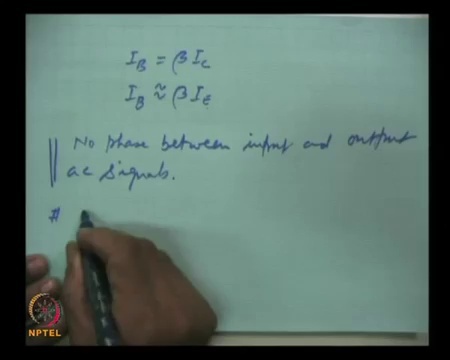 I_B = βI_C
I_B ≈ βI_E
No phase between input and output
ac signals.
#
NPTEL